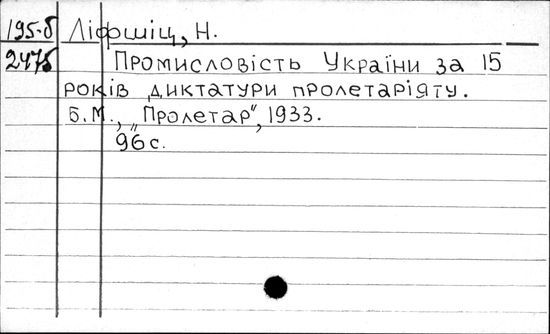 195-б Ліфшіц, Н.
2475 Промисловість України за 15
років диктатури пролетаріяту.
Б.М., „Пролетар", 1933.
96 с.